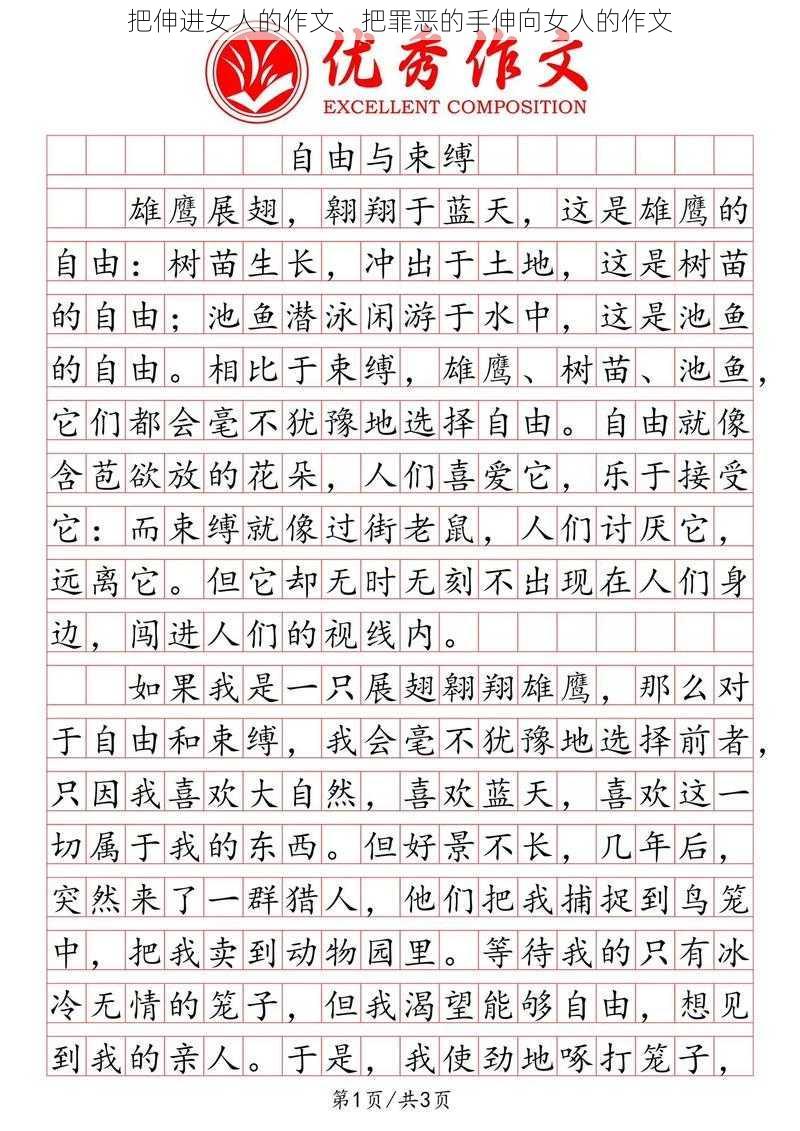 把伸进女人的作文、把罪恶的手伸向女人的作文
优秀作文
EXCELLENT COMPOSITION
自由与束缚
雄鹰展翅，翱翔于蓝天，这是雄鹰的
自由：树苗生长，冲出于土地，这是树苗
的自由；池鱼潜泳闲游于水中，这是池鱼
的自由。相比于束缚，雄鹰、树苗、池鱼，
它们都会毫不犹豫地选择自由。自由就像
含苞欲放的花朵，人们喜爱它，乐于接受
它：而束缚就像过街老鼠，人们讨厌它，
远离它。但它却无时无刻不出现在人们身
边，闯进人们的视线内。
如果我是一只展翅翱翔雄鹰，那么对
于自由和束缚，我会毫不犹豫地选择前者，
只因我喜欢大自然，喜欢蓝天，喜欢这一
切属于我的东西。但好景不长，几年后，
突然来了一群猎人，他们把我捕捉到鸟笼
中，把我卖到动物园里。等待我的只有冰
冷无情的笼子，但我渴望能够自由，想见
到我的亲人。于是，我使劲地啄打笼子，
第1页/共3页